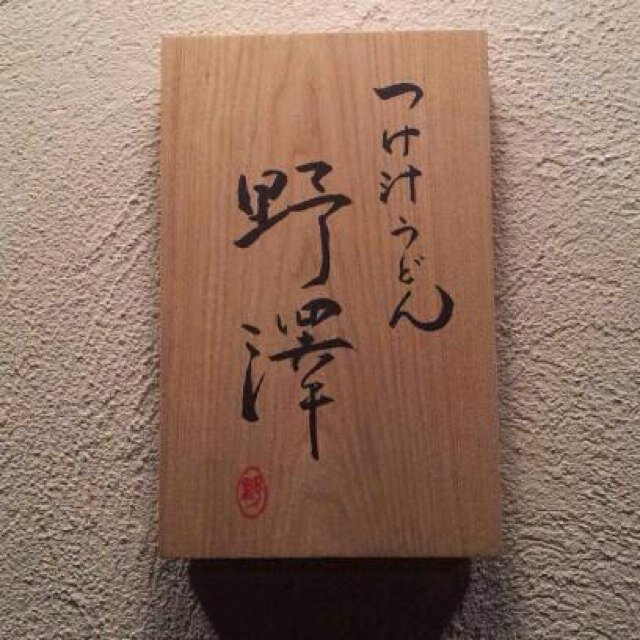 つけ汁うどん
野澤